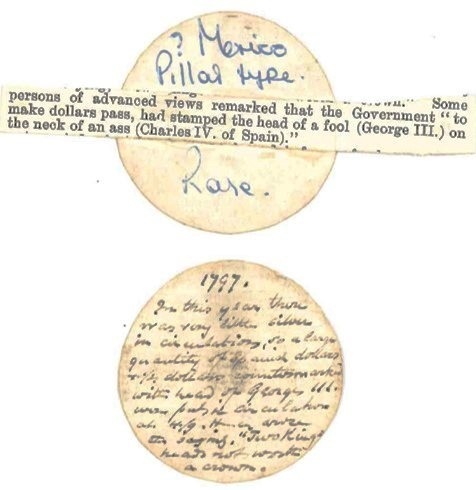 ? Mexico
Pillar type.
Some
persons of advanced views remarked that the Government "to
make dollars pass, had stamped the head of a fool (George III.) on
the neck of an ass (Charles IV. of Spain)."
Rare.
1797.
In this year there
was very little silver
in circulation, so a large
quantity of Spanish dollars
dollars countermarked
with head of George III.
was put in circulation
at 4/9. Hence arose
the saying, "Two Kings'
heads not worth
a crown.